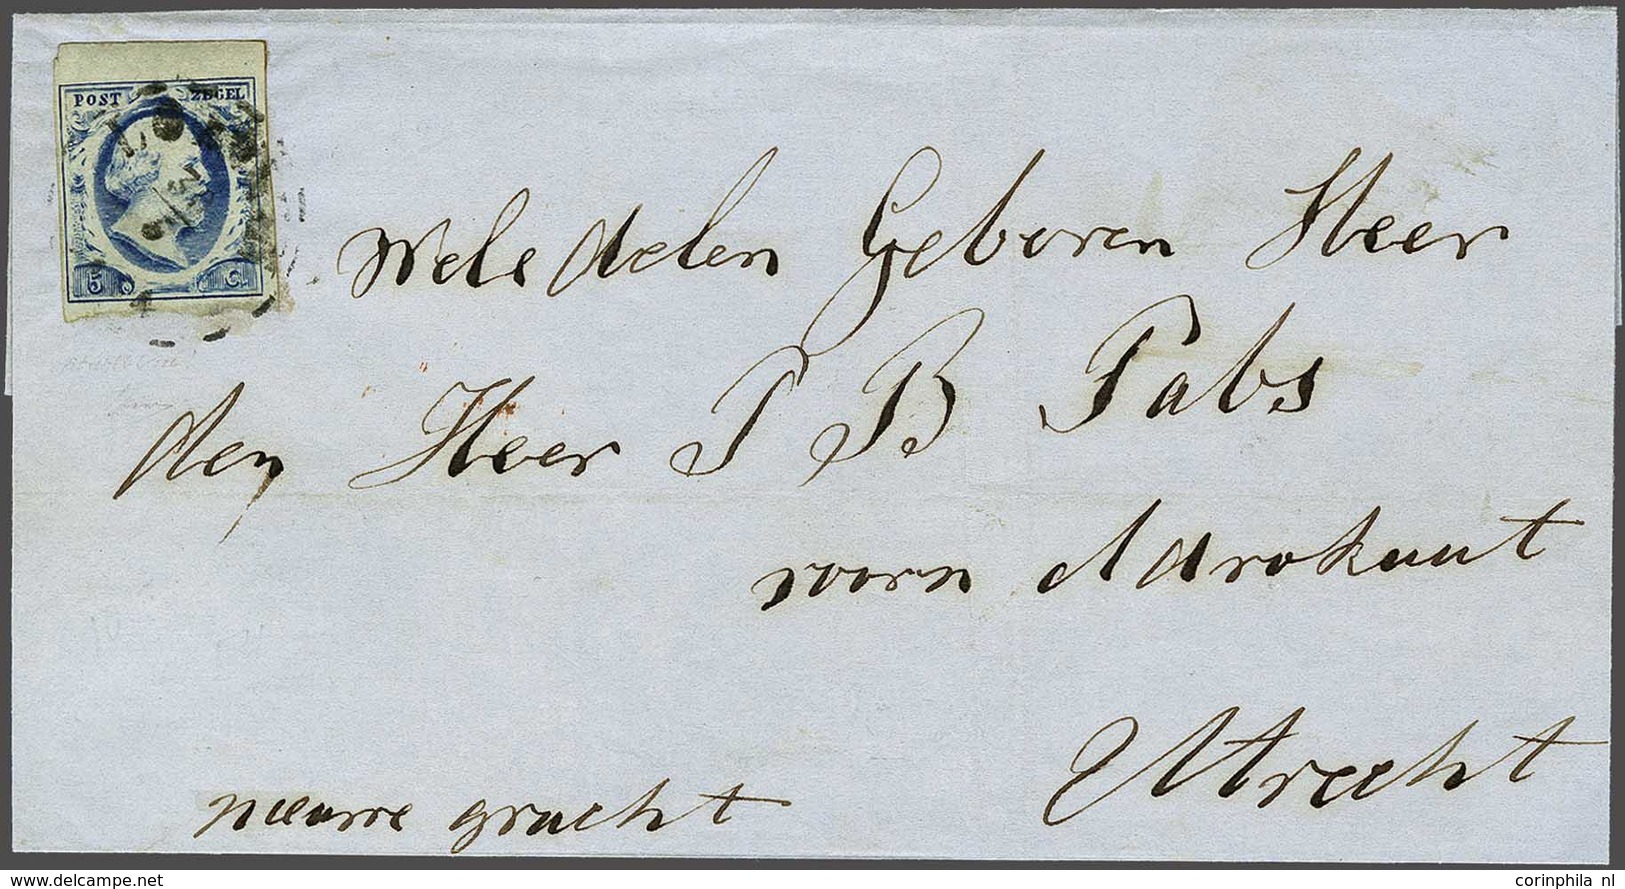 POST ZEGEL
5 C
Weledelen Geboren Heer
den Heer P B Pabs
voorn Advokaat
Utrecht
nieuwe gracht
corinphila nl